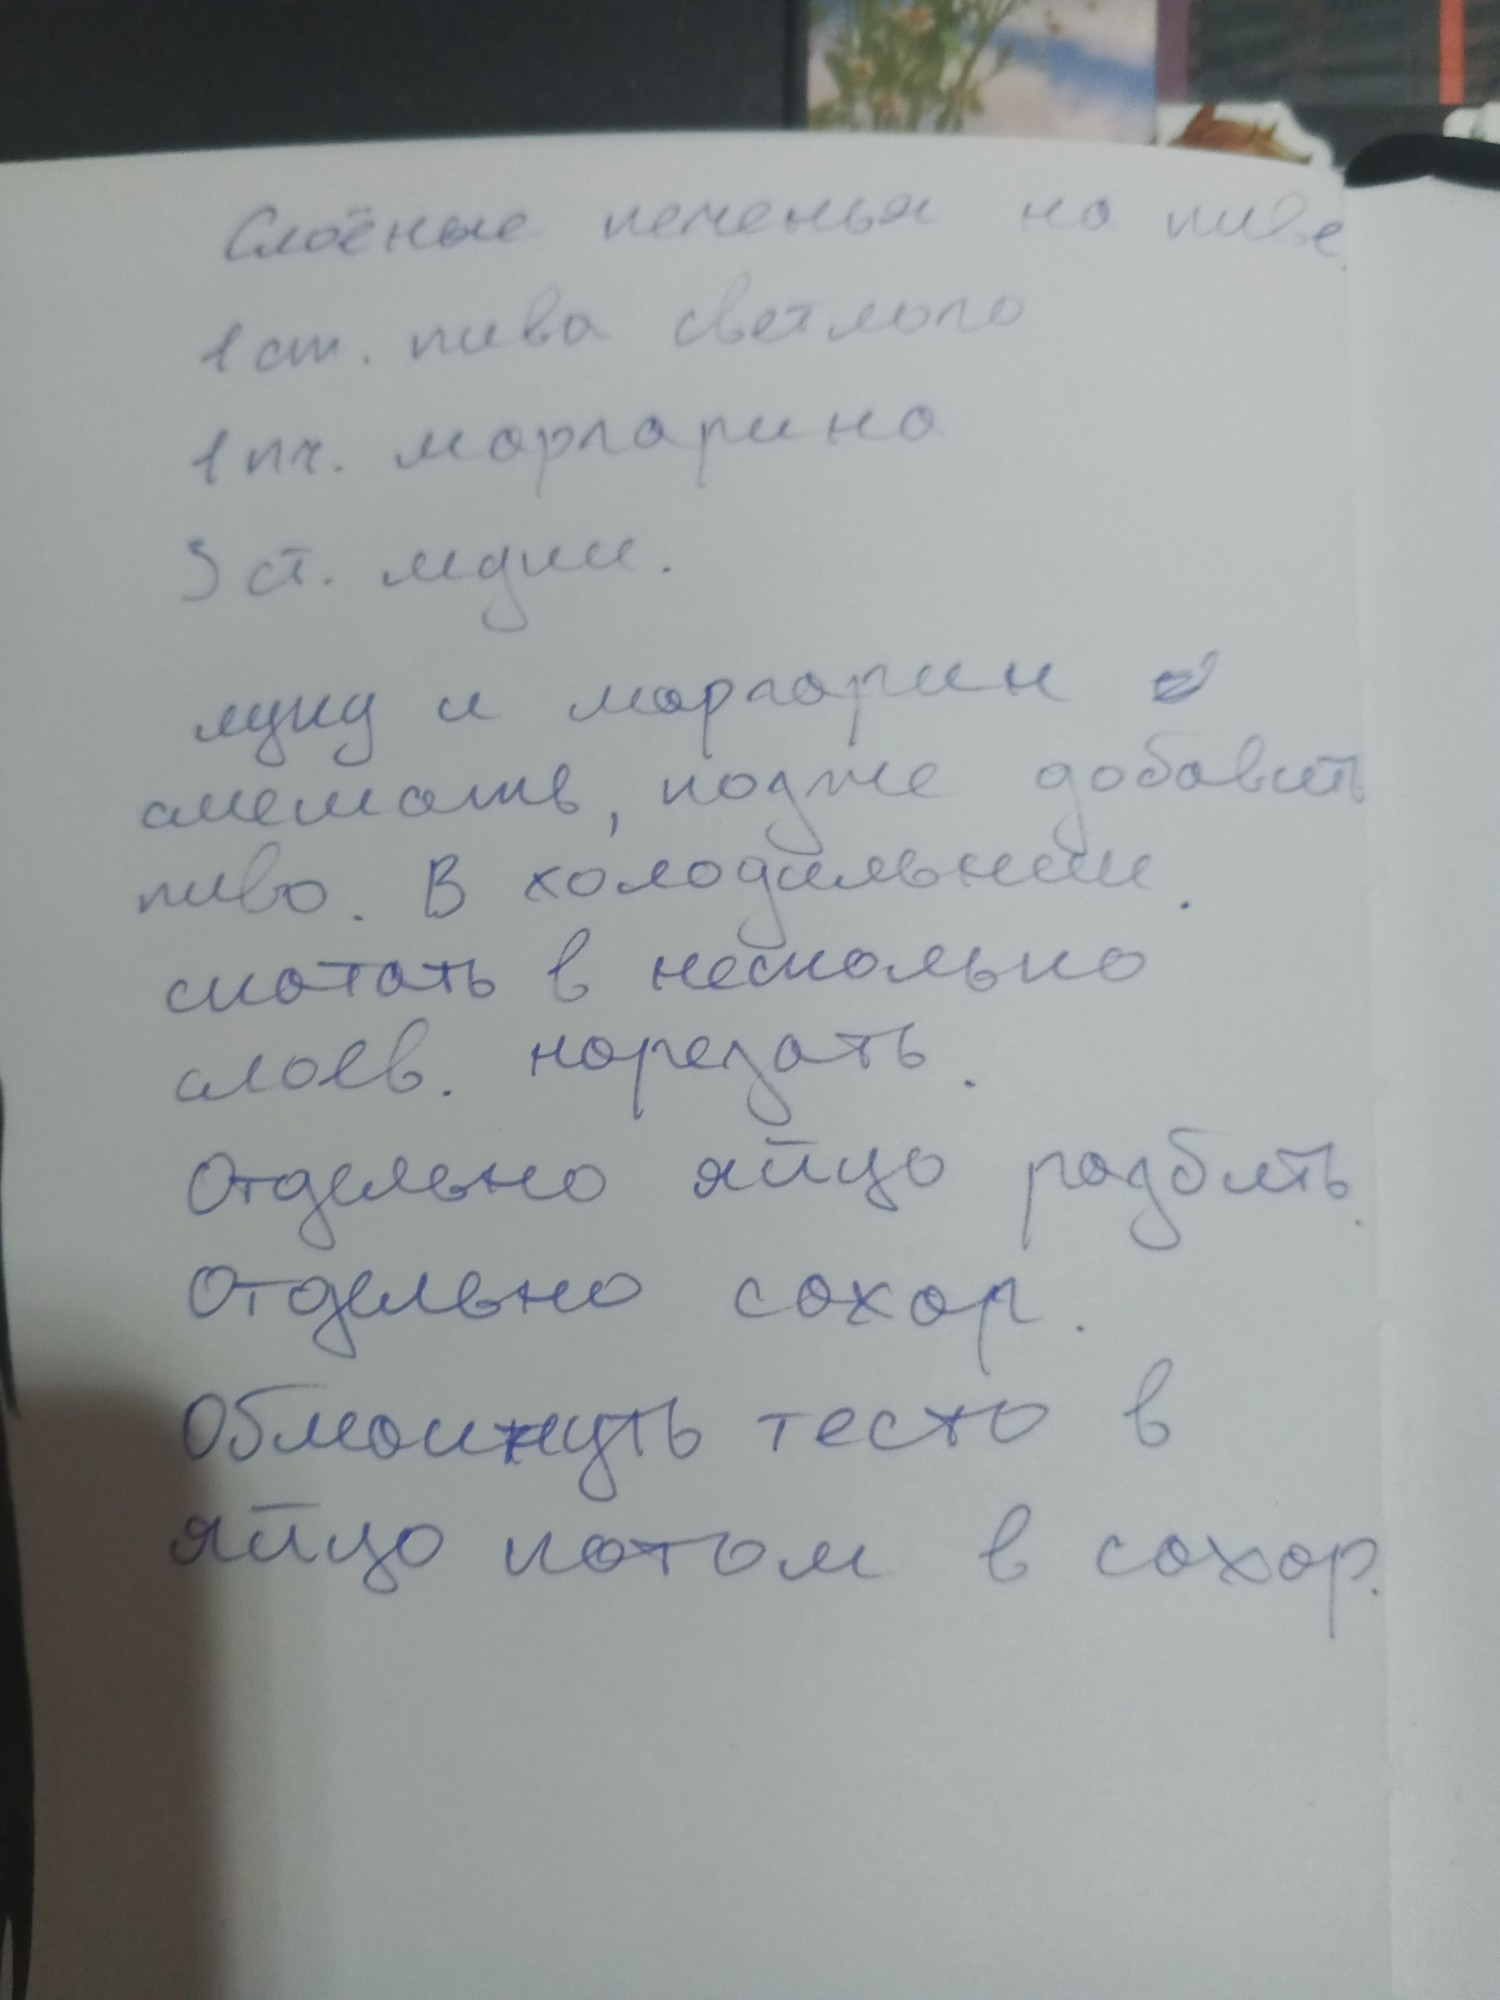 Слоёные печенья на пиве.
1 ст. пива светлого
1 пч. маргарина
3 ст. муки.
муку и маргарин
смешать, позже добавить
пиво. В холодильник.
скатать в несколько
слоев. нарезать.
Отдельно яйцо разбить.
Отдельно сахар.
Обмакнуть тесто в
яйцо потом в сахар.